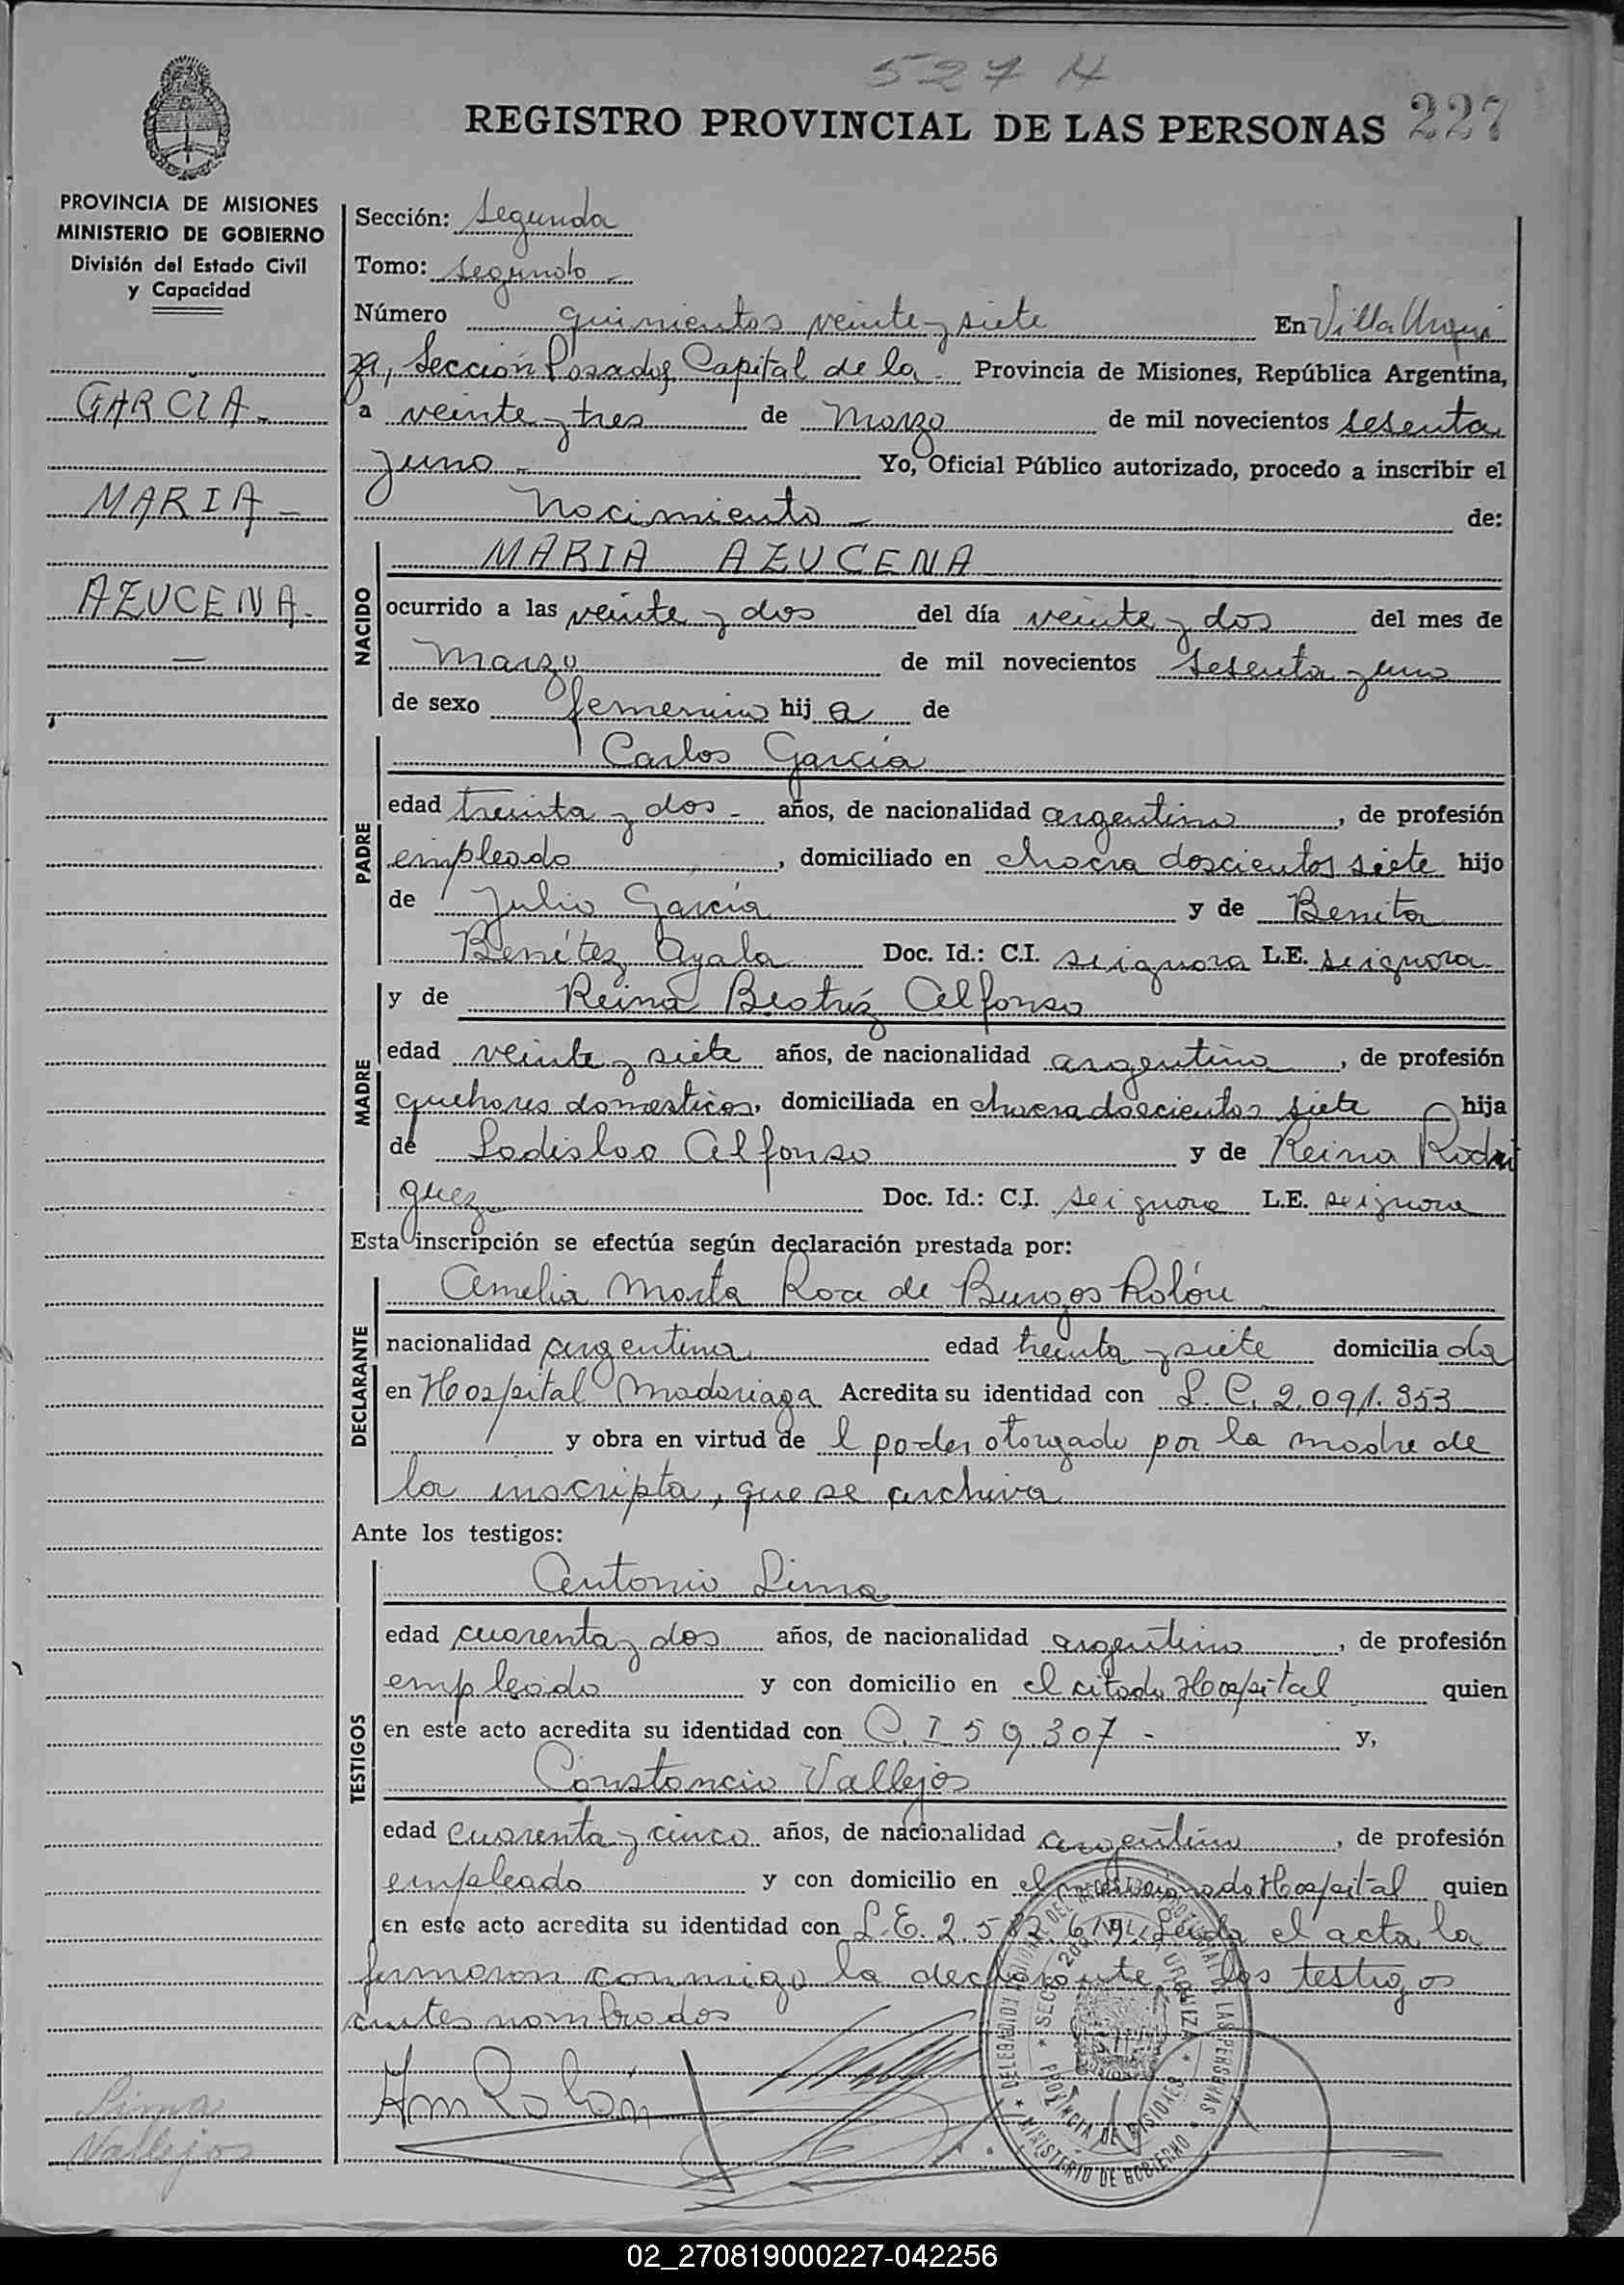 527 N
REGISTRO PROVINCIAL DE LAS PERSONAS 227
PROVINCIA DE MISIONES
MINISTERIO DE GOBIERNO
División del Estado Civil
y Capacidad
GARCIA.-
MARIA -
AZUCENA.
—
Sección: Segunda
Tomo: Segundo -
Número quinientos veinte y siete En Villa Urqui
za, Sección Posadas Capital de la - Provincia de Misiones, República Argentina,
a veinte y tres de Marzo de mil novecientos sesenta
y uno - Yo, Oficial Público autorizado, procedo a inscribir el
Nacimiento - de:
NACIDO
MARIA AZUCENA
ocurrido a las veinte y dos del día veinte y dos del mes de
Marzo de mil novecientos sesenta y uno
de sexo femenino hij a de
PADRE
Carlos García
edad treinta y dos - años, de nacionalidad argentina, de profesión
empleado, domiciliado en chacra doscientos siete hijo
de Julio García y de Benita
Benítez Ayala Doc. Id.: C.I. se ignora L.E. se ignora
MADRE
y de Reina Beatríz Alfonso
edad veinte y siete años, de nacionalidad argentina, de profesión
quehaceres domesticos, domiciliada en chacra doscientos siete hija
de Ladislao Alfonso y de Reina Rodri
guez Doc. Id.: C.I. se ignora L.E. se ignora
Esta inscripción se efectúa según declaración prestada por:
DECLARANTE
Amelia Marta Roa de Burgos Rolón
nacionalidad argentina edad treinta y siete domicilia da
en Hospital Madariaga Acredita su identidad con L.C. 2.091.353
y obra en virtud de l poder otorgado por la madre de
la inscripta, que se archiva
Ante los testigos:
TESTIGOS
Antonio Lima
edad cuarenta y dos años, de nacionalidad argentino, de profesión
empleado y con domicilio en el citado Hospital quien
en este acto acredita su identidad con C.I 59.307 - y,
Constancio Vallejos
edad cuarenta y cinco años, de nacionalidad argentino, de profesión
empleado y con domicilio en el mencionado Hospital quien
en este acto acredita su identidad con L.E. 2.5 Leida el acta la
firmaron conmigo la declarante y los testigos
antes nombrados
Am Rolón
Lima
Vallejos
PROVINCIA DE MISIONES
MINISTERIO DE GOBIERNO
02_270819000227-042256